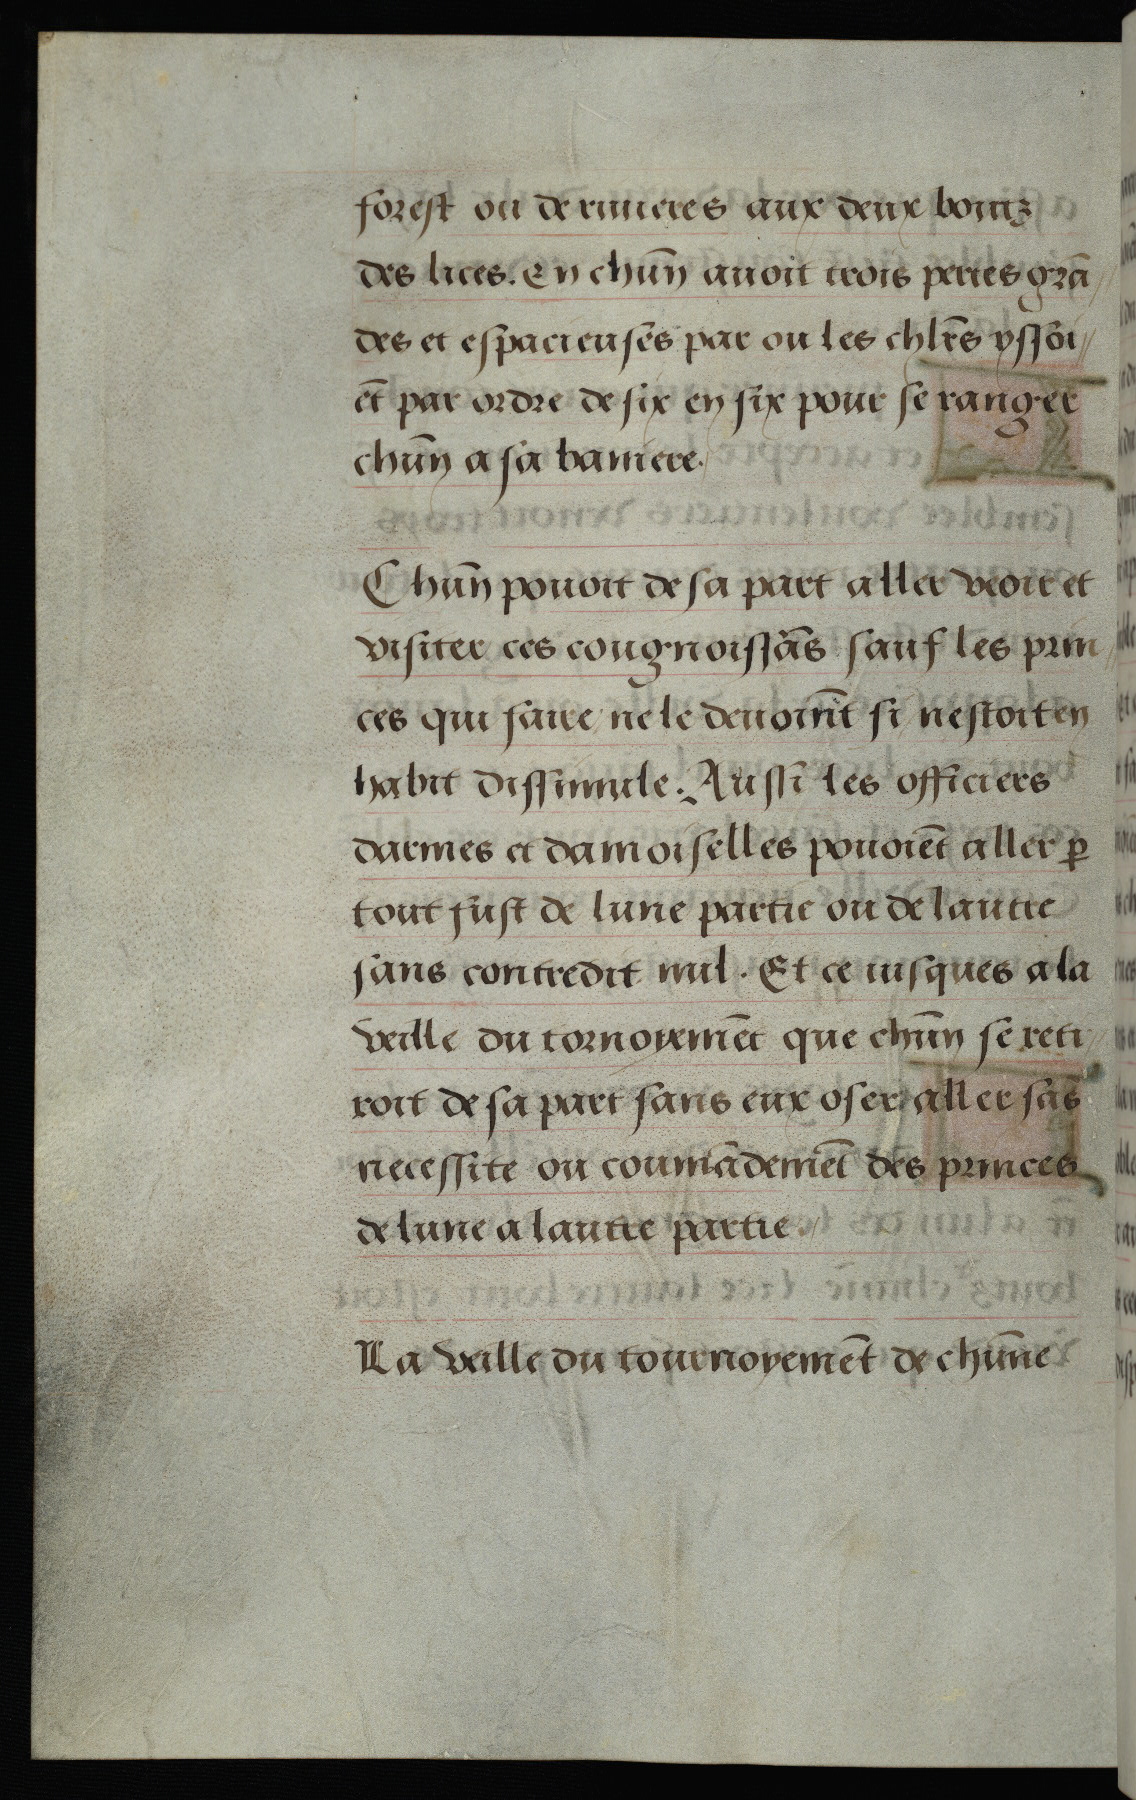 forest ou de riuieres aux deux boutz
des lices. En chũn auoit trois portes grã//
des et espacieuses par ou les chlr̃s yssoi//
ẽt par ordre de six en six pour se ranger
chũn a sa baniere.
Chũn pouoit de sa part aller veoir et
visiter ces cougnoissãs sauf les prin//
ces qui faire ne le deuoiñt si nestoit en
habit dissimule. Aussi les officiers
darmes et damoiselles pouoiẽt aller ꝑ
tout fust de lune partie ou de lautre
sans contredit nul. Et ce iusques a la
veille du tornoyemẽt que chũn se reti//
roit de sa part sans eux oser aller sãs
necessite ou coumãdemẽt des princes
de lune a lautre partie.
La veille du tournoyemẽt de chũne